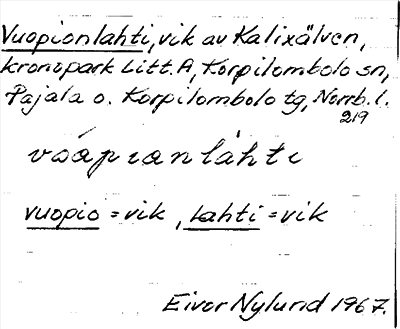 Vuopionlahti, vik av Kalixälven,
kronopark Litt. A, Korpilombolo sn,
Pajala o. Korpilombolo tg, Norrb. l.
219
vuopio = vik, lahti = vik
Eivor Nylund 1967.